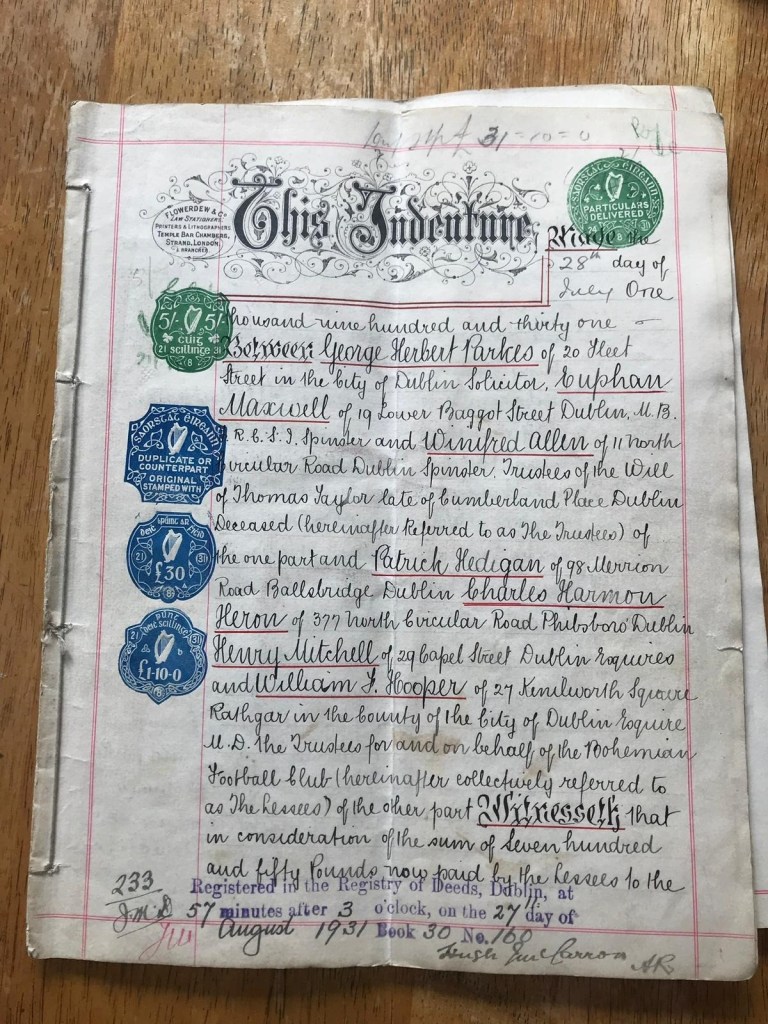 31 = 10 = 0
FLOWERDEW & Co
LAW STATIONERS,
PRINTERS & LITHOGRAPHERS
TEMPLE BAR CHAMBERS,
STRAND, LONDON.
& BRANCHES
This Indenture
SAORSTÁT ÉIREANN
PARTICULARS
DELIVERED
Made the
28th day of
July One
thousand nine hundred and thirty one
5/- 5/-
CÚIG
21 scillinge 31
8
Between George Herbert Parkes of 20 Fleet
Street in the City of Dublin Solicitor, Euphan
Maxwell of 19 Lower Baggot Street Dublin, M.B.
F.R.C.S.I. Spinster and Winifred Allen of 11 North
Circular Road Dublin Spinster, Trustees of the Will
of Thomas Taylor late of Cumberland Place Dublin
Deceased (hereinafter referred to as The Trustees) of
the one part and Patrick Hedigan of 98 Merrion
Road Ballsbridge Dublin Charles Harmon
Heron of 377 North Circular Road Phibsboro' Dublin
Henry Mitchell of 29 Capel Street Dublin Esquires
and William F. Hooper of 27 Kenilworth Square
Rathgar in the County of the City of Dublin Esquire
M.D. the Trustees for and on behalf of the Bohemian
Football Club (hereinafter collectively referred to
as The Lessees) of the other part Witnesseth that
in consideration of the sum of Seven hundred
and fifty Pounds now paid by the Lessees to the
SAORSTÁT ÉIREANN
DUPLICATE OR
COUNTERPART
ORIGINAL
STAMPED WITH
21 31
£30
8
PÚNT
DEICH SCILLINGE
21 31
£1-10-0
8
233
Registered in the Registry of Deeds, Dublin, at
57 minutes after 3 o'clock, on the 27 day of
August 1931 Book 30 No. 160